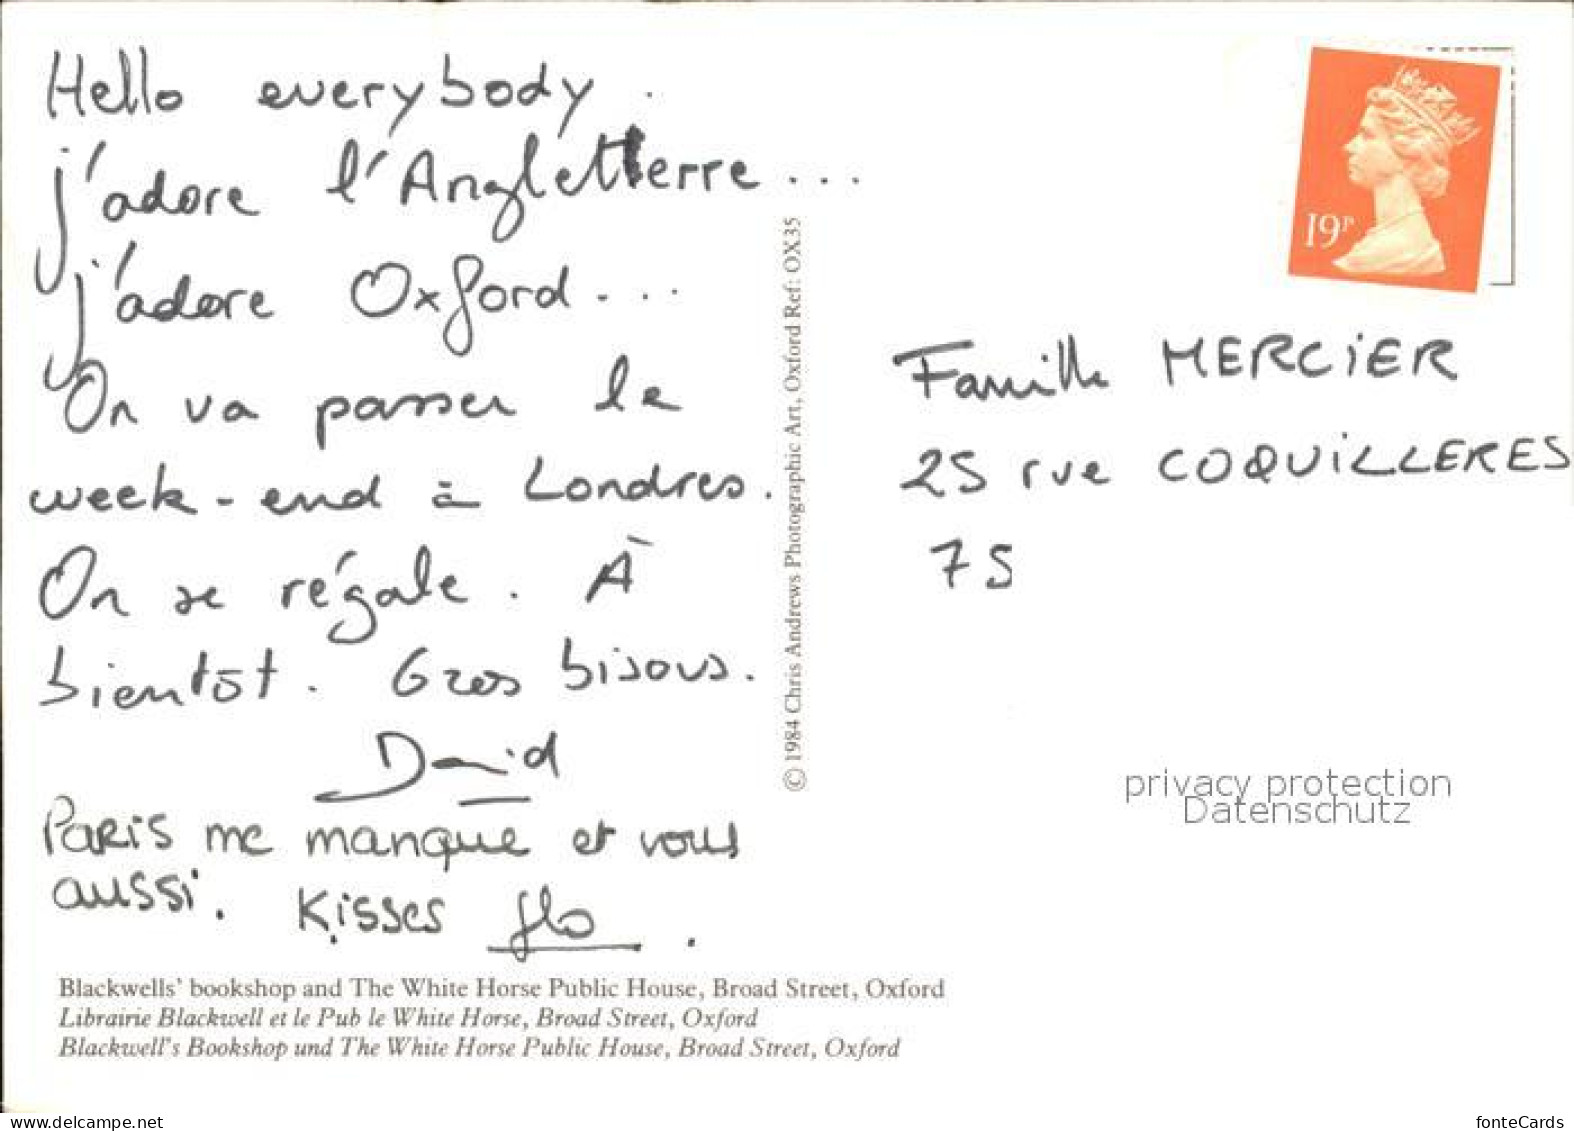 Hello everybody.
j'adore l'Angletterre...
j'adore Oxford....
On va passer le
week-end à Londres.
On se régale. À
bientôt. Gros bisous.
David
PARIS me manque et vous
aussi. Kisses flo.
Blackwells' bookshop and The White Horse Public House, Broad Street, Oxford
Librairie Blackwell et le Pub le White Horse, Broad Street, Oxford
Blackwell's Bookshop und The White Horse Public House, Broad Street, Oxford
© 1984 Chris Andrews Photographic Art, Oxford Ref: OX35
19P
Famille MERCIER
25 rue COQUILLERES
75
privacy protection
Datenschutz
www.delcampe.net
fonteCards